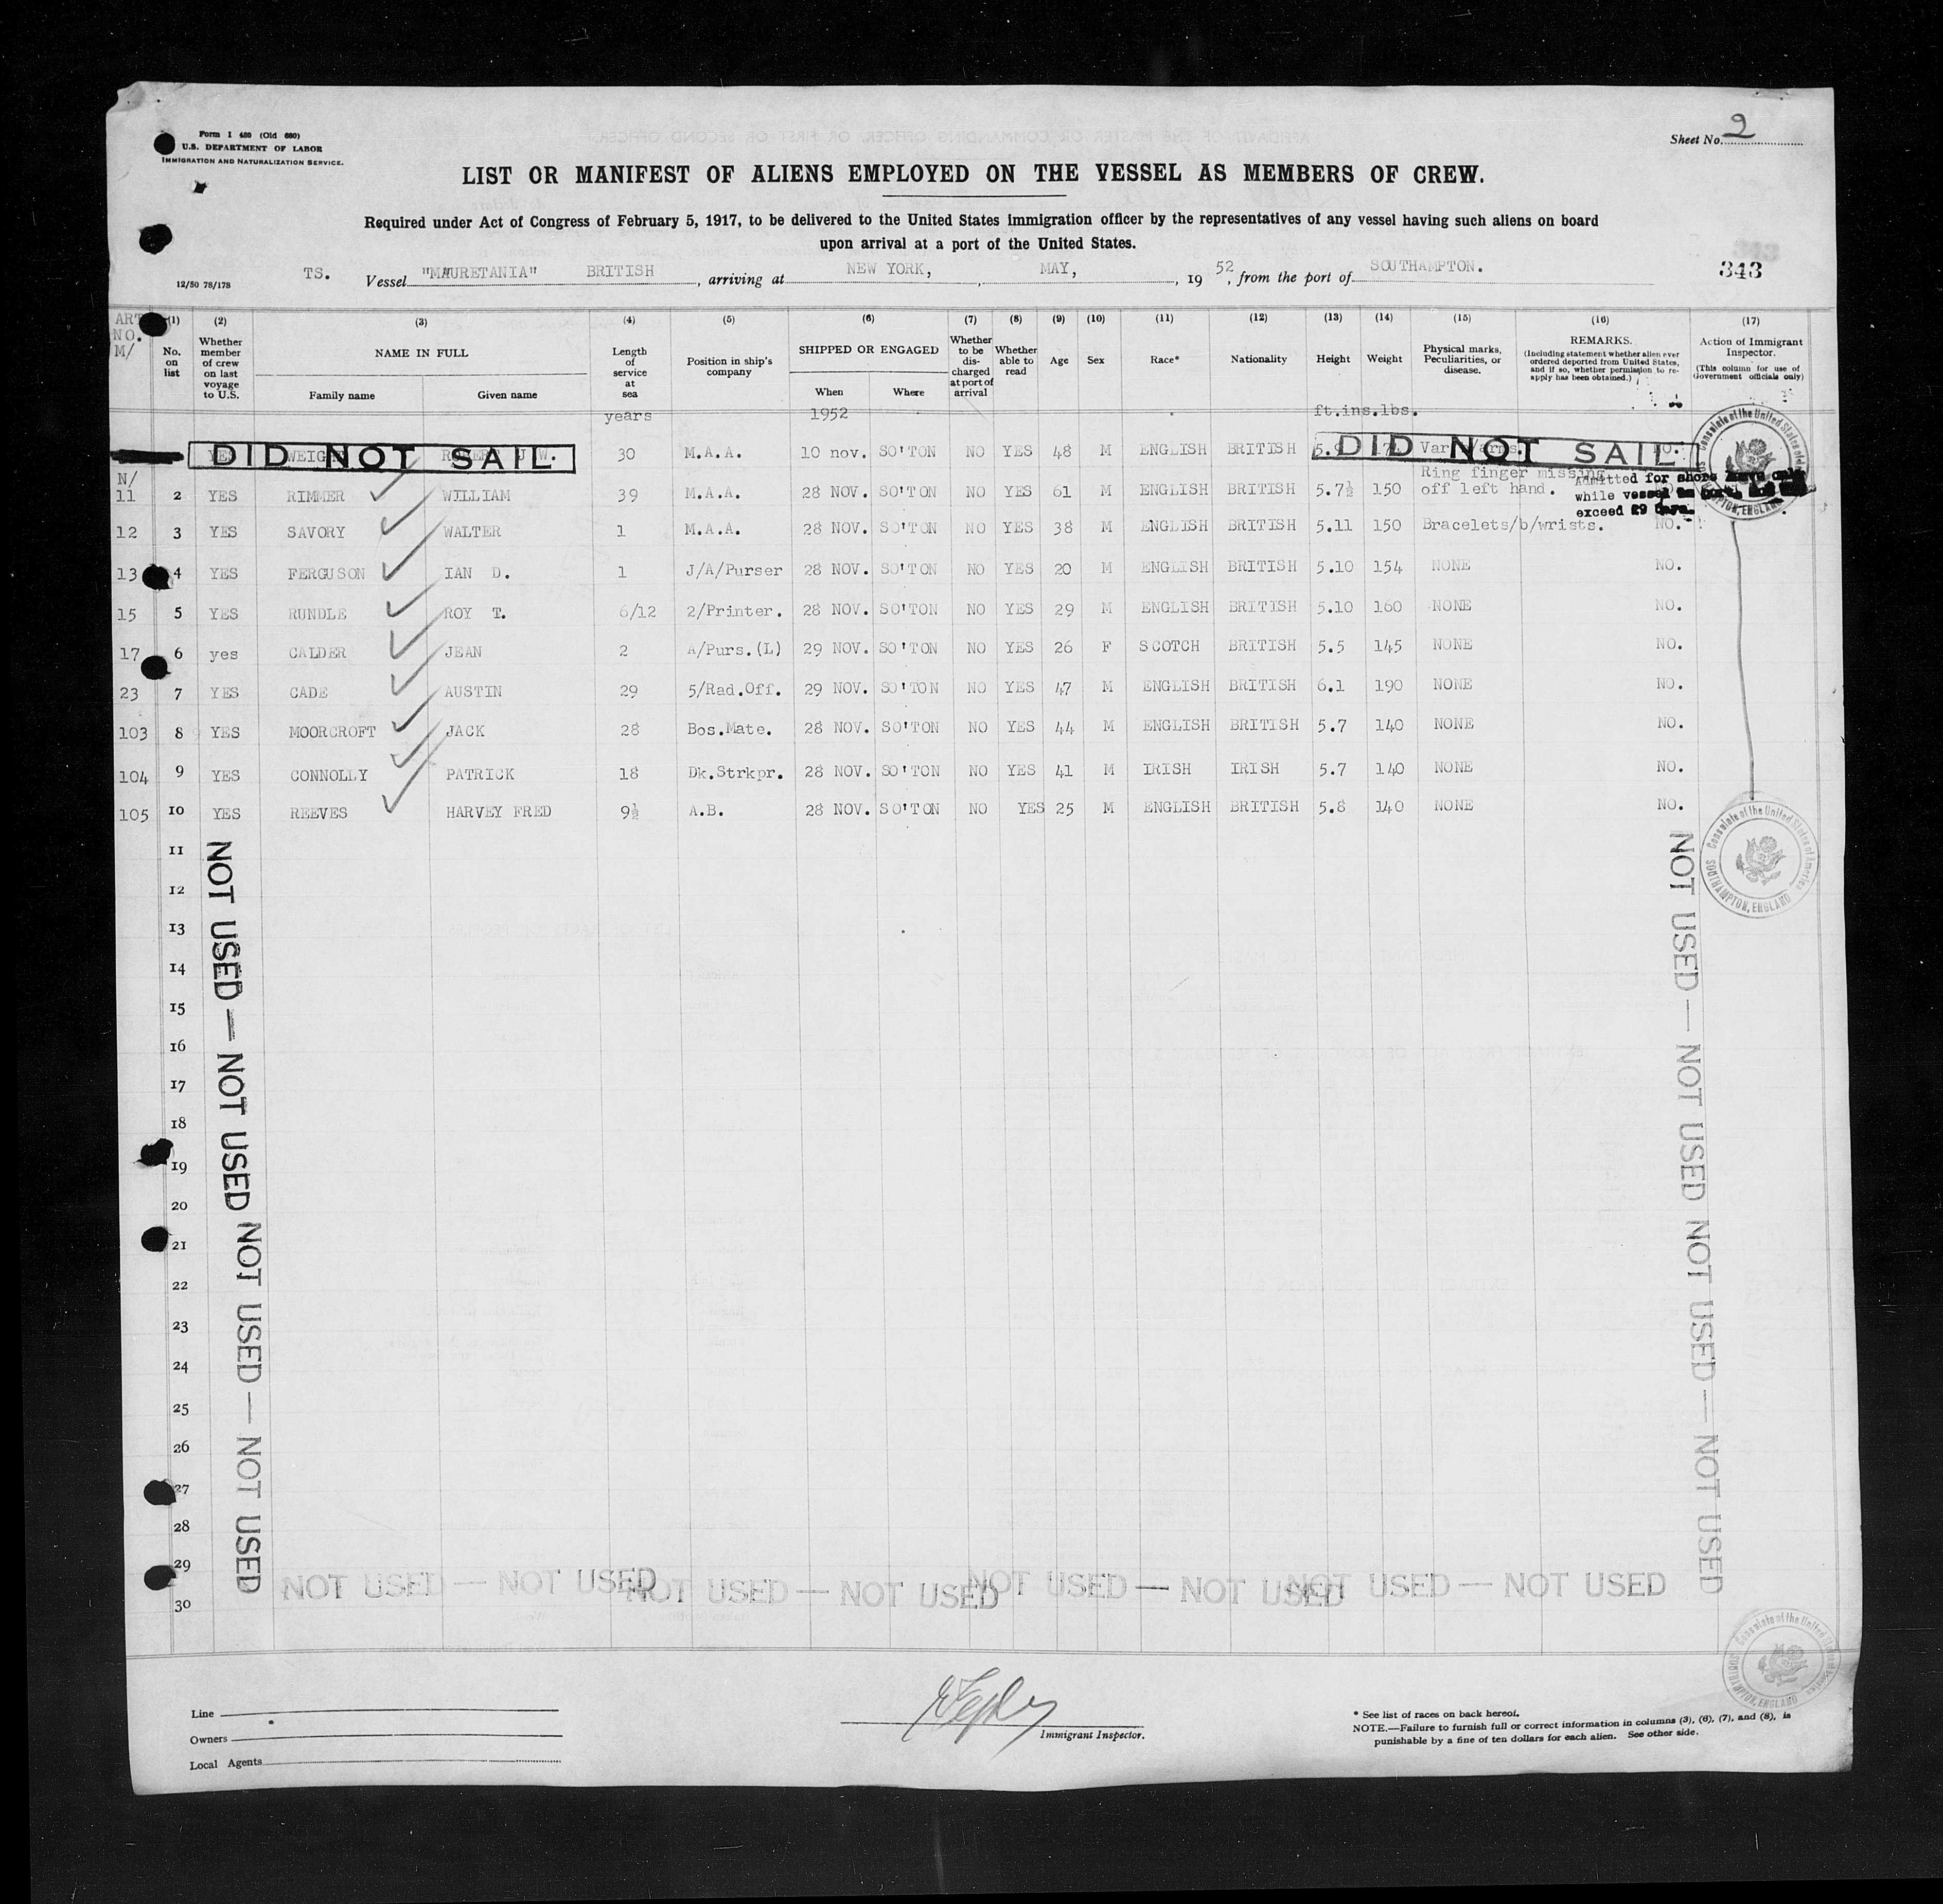 Form I 480 (Old 680)
U.S. DEPARTMENT OF LABOR
IMMIGRATION AND NATURALIZATION SERVICE.
Sheet No. 2
LIST OR MANIFEST OF ALIENS EMPLOYED ON THE VESSEL AS MEMBERS OF CREW.
Required under Act of Congress of February 5, 1917, to be delivered to the United States immigration officer by the representatives of any vessel having such aliens on board
upon arrival at a port of the United States.
12/50 78/178
TS. Vessel "MAURETANIA" BRITISH, arriving at NEW YORK, MAY, 1952, from the port of SOUTHAMPTON.
343
ART NO. M/
(1) No. on list
(2) Whether member of crew on last voyage to U.S.
(3) NAME IN FULL
Family name Given name
(4) Length of service at sea
(5) Position in ship's company
(6) SHIPPED OR ENGAGED
When Where
(7) Whether to be discharged at port of arrival
(8) Whether able to read
(9) Age
(10) Sex
(11) Race*
(12) Nationality
(13) Height
(14) Weight
(15) Physical marks, Peculiarities, or disease.
(16) REMARKS.
(Including statement whether alien ever ordered deported from United States, and if so, whether permission to re-apply has been obtained.)
(17) Action of Immigrant Inspector.
(This column for use of Government officials only)
years 1952 ft.ins.lbs.
DID NOT SAIL 30 M.A.A. 10 nov. SO'TON NO YES 48 M ENGLISH BRITISH DID NOT SAIL
N/
11 2 YES RIMMER WILLIAM 39 M.A.A. 28 NOV. SO'TON NO YES 61 M ENGLISH BRITISH 5.7½ 150 Ring finger missing off left hand.
Admitted for shore
while vessel
exceed 29 days
12 3 YES SAVORY WALTER 1 M.A.A. 28 NOV. SO'TON NO YES 38 M ENGLISH BRITISH 5.11 150 Bracelets/b/wrists. NO.
13 4 YES FERGUSON IAN D. 1 J/A/Purser 28 NOV. SO'TON NO YES 20 M ENGLISH BRITISH 5.10 154 NONE NO.
15 5 YES RUNDLE ROY T. 6/12 2/Printer. 28 NOV. SO'TON NO YES 29 M ENGLISH BRITISH 5.10 160 NONE NO.
17 6 yes CALDER JEAN 2 A/Purs.(L) 29 NOV. SO'TON NO YES 26 F SCOTCH BRITISH 5.5 145 NONE NO.
23 7 YES CADE AUSTIN 29 5/Rad.Off. 29 NOV. SO'TON NO YES 47 M ENGLISH BRITISH 6.1 190 NONE NO.
103 8 YES MOORCROFT JACK 28 Bos.Mate. 28 NOV. SO'TON NO YES 44 M ENGLISH BRITISH 5.7 140 NONE NO.
104 9 YES CONNOLLY PATRICK 18 Dk.Strkpr. 28 NOV. SO'TON NO YES 41 M IRISH IRISH 5.7 140 NONE NO.
105 10 YES REEVES HARVEY FRED 9½ A.B. 28 NOV. SO'TON NO YES 25 M ENGLISH BRITISH 5.8 140 NONE NO.
Consulate of the United States of America
SOUTHAMPTON, ENGLAND
11
12
13
14
15
16
17
18
19
20
21
22
23
24
25
26
27
28
29
30
NOT USED — NOT USED NOT USED — NOT USED
NOT USED — NOT USED NOT USED — NOT USED
NOT USED — NOT USED NOT USED — NOT USED NOT USED — NOT USED NOT USED — NOT USED
Consulate of the United States of America
SOUTHAMPTON, ENGLAND
Line
Owners
Local Agents
Immigrant Inspector.
* See list of races on back hereof.
NOTE.—Failure to furnish full or correct information in columns (3), (6), (7), and (8), is
punishable by a fine of ten dollars for each alien. See other side.